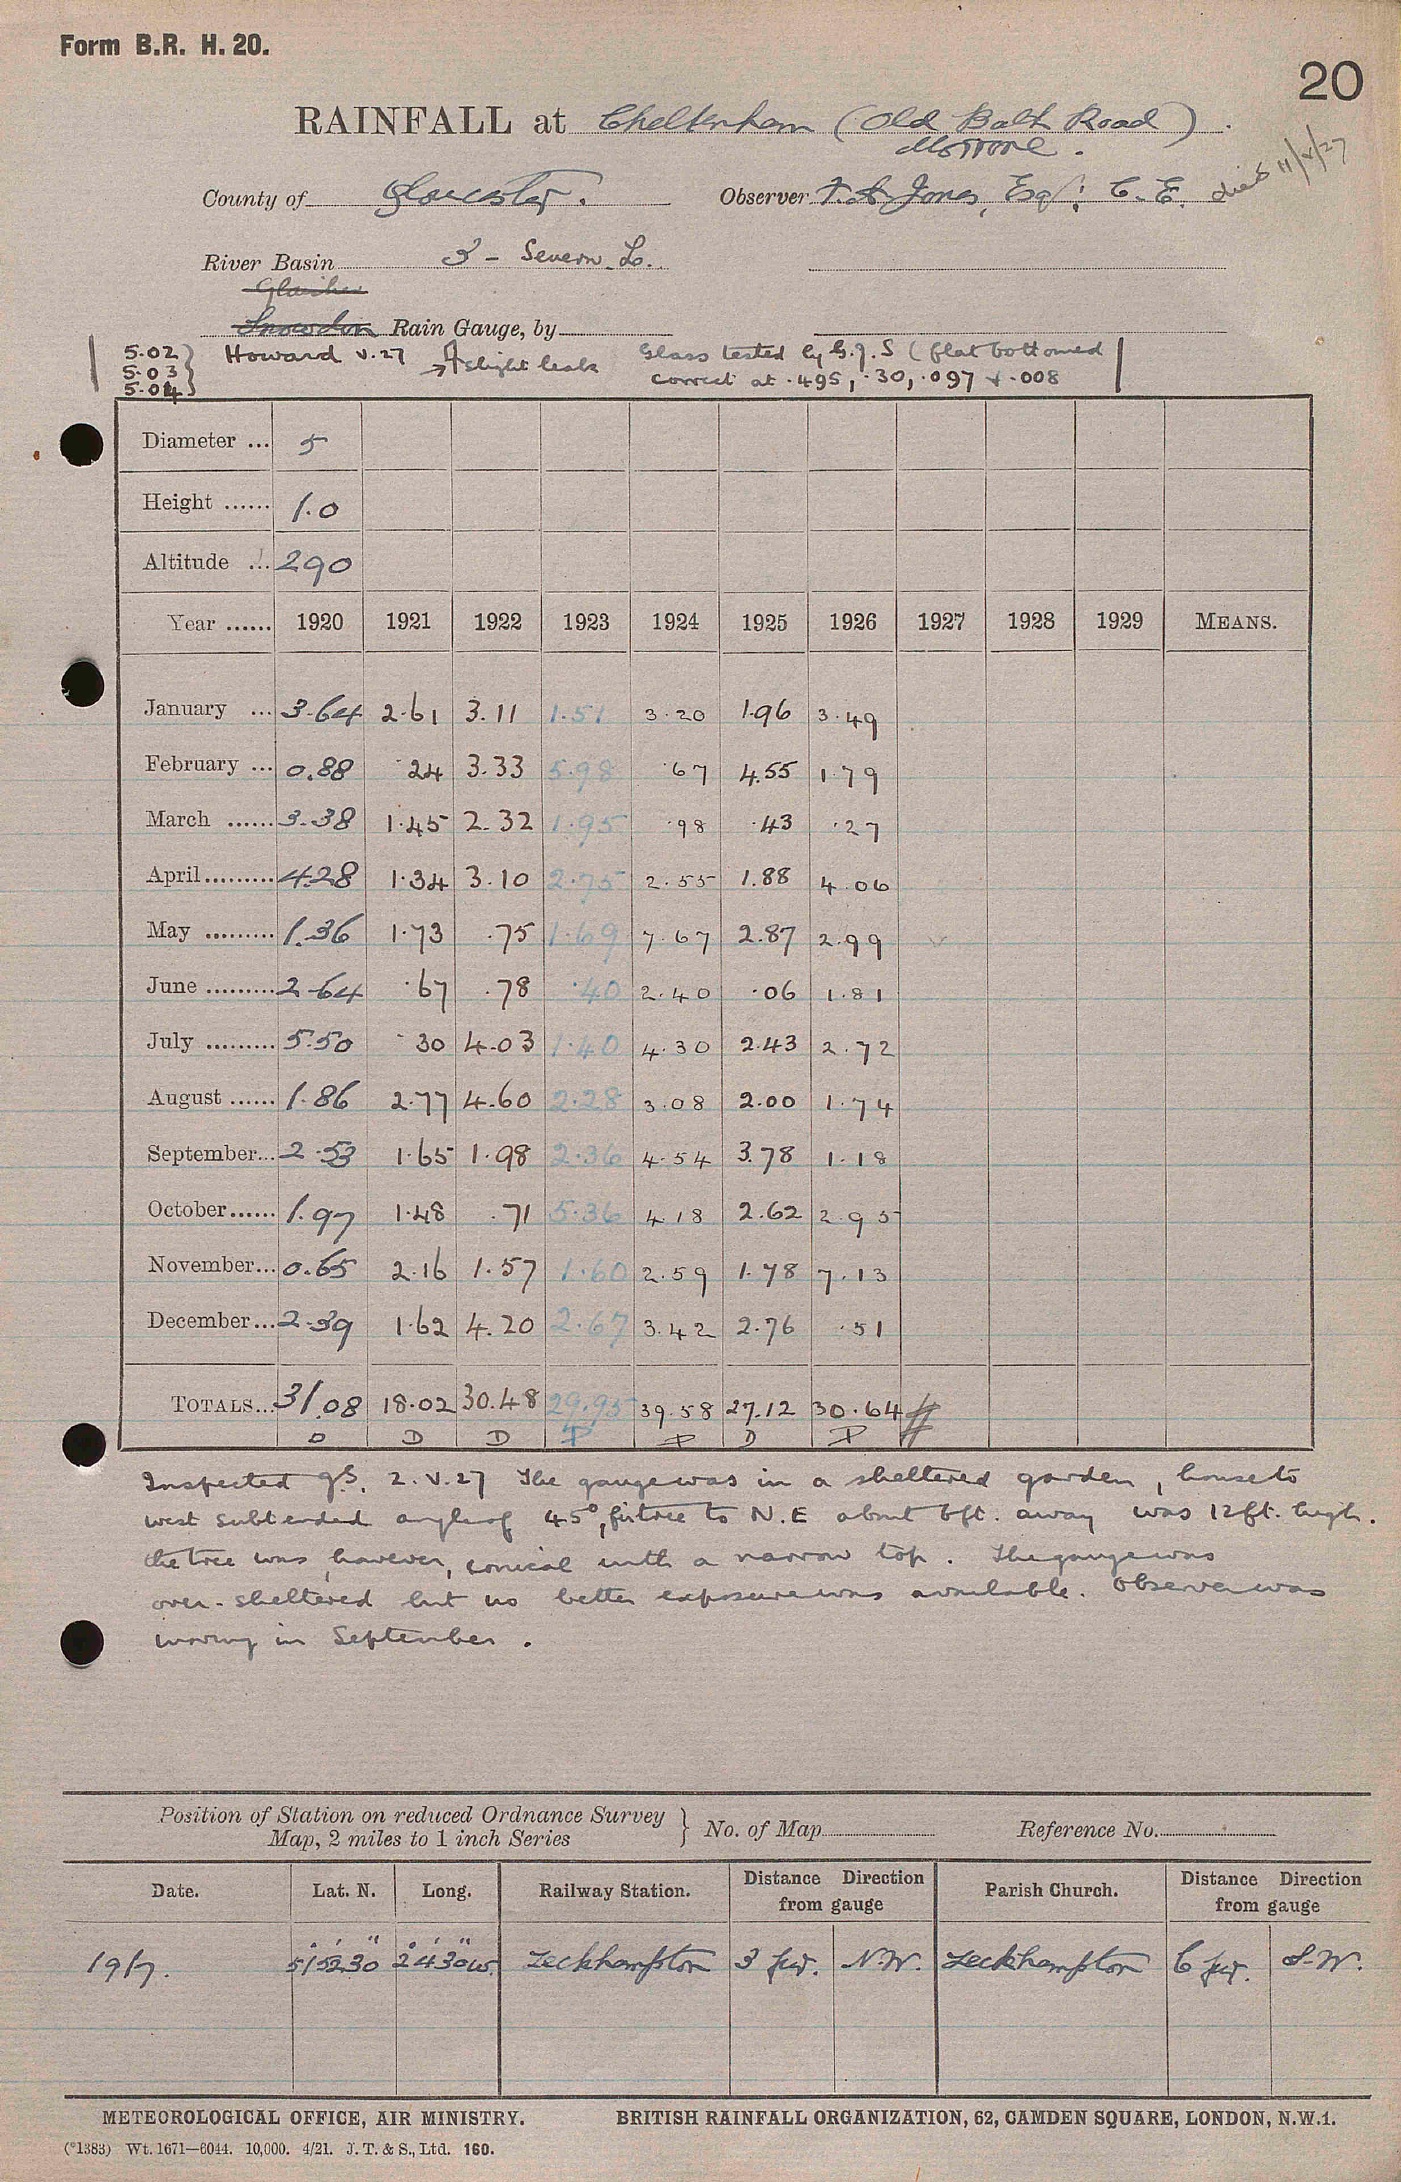 Form B.R. H. 20.
20
RAINFALL at Cheltenham (Old Bath Road)
County of Gloucester. Observer F. A. Jones, Esq: C.E. died 11/V/27
River Basin 3 - Severn L.
Glaisher
Snowdon Rain Gauge, by
5.02 Howard V.27 slight leak Glass tested by G.J.S (flat bottomed
5.03 correct at .495, .30, .097 & .008
5.04
Diameter ... 5
Height ...... 1.0
Altitude ... 290
Year ...... 1920 1921 1922 1923 1924 1925 1926 1927 1928 1929 MEANS.
January ... 3.64 2.61 3.11 1.51 3.20 1.96 3.49
February ... 0.88 .24 3.33 5.98 .67 4.55 1.79
March ...... 3.38 1.45 2.32 1.95 .98 .43 .27
April ......... 4.28 1.34 3.10 2.75 2.55 1.88 4.06
May ......... 1.36 1.73 .75 1.69 7.67 2.87 2.99
June ......... 2.64 .67 .78 .40 2.40 .06 1.81
July ......... 5.50 .30 4.03 1.40 4.30 2.43 2.72
August ...... 1.86 2.77 4.60 2.28 3.08 2.00 1.74
September... 2.53 1.65 1.98 2.36 4.54 3.78 1.18
October...... 1.97 1.48 .71 5.36 4.18 2.62 2.95
November... 0.65 2.16 1.57 1.60 2.59 1.78 7.13
December... 2.39 1.62 4.20 2.67 3.42 2.76 .51
TOTALS... 31.08 18.02 30.48 29.95 39.58 27.12 30.64
D D D P P D P
Inspected g.S. 2.V.27 The gauge was in a sheltered garden, house to
west subtended angle of 45°, fir tree to N.E about 6ft. away was 12ft. high.
the tree was, however, conical with a narrow top. The gauge was
over-sheltered but no better exposure was available. Observer was
moving in September.
Position of Station on reduced Ordnance Survey
Map, 2 miles to 1 inch Series } No. of Map Reference No.
Date. Lat. N. Long. Railway Station. Distance Direction from gauge Parish Church. Distance Direction from gauge
1917. 51° 52' 30" 2° 4' 30" W. Leckhampton 3 fur. N.W. Leckhampton 6 fur. S.W.
METEOROLOGICAL OFFICE, AIR MINISTRY. BRITISH RAINFALL ORGANIZATION, 62, CAMDEN SQUARE, LONDON, N.W.1.
(*1383) Wt. 1671—6044. 10,000. 4/21. J. T. & S., Ltd. 160.